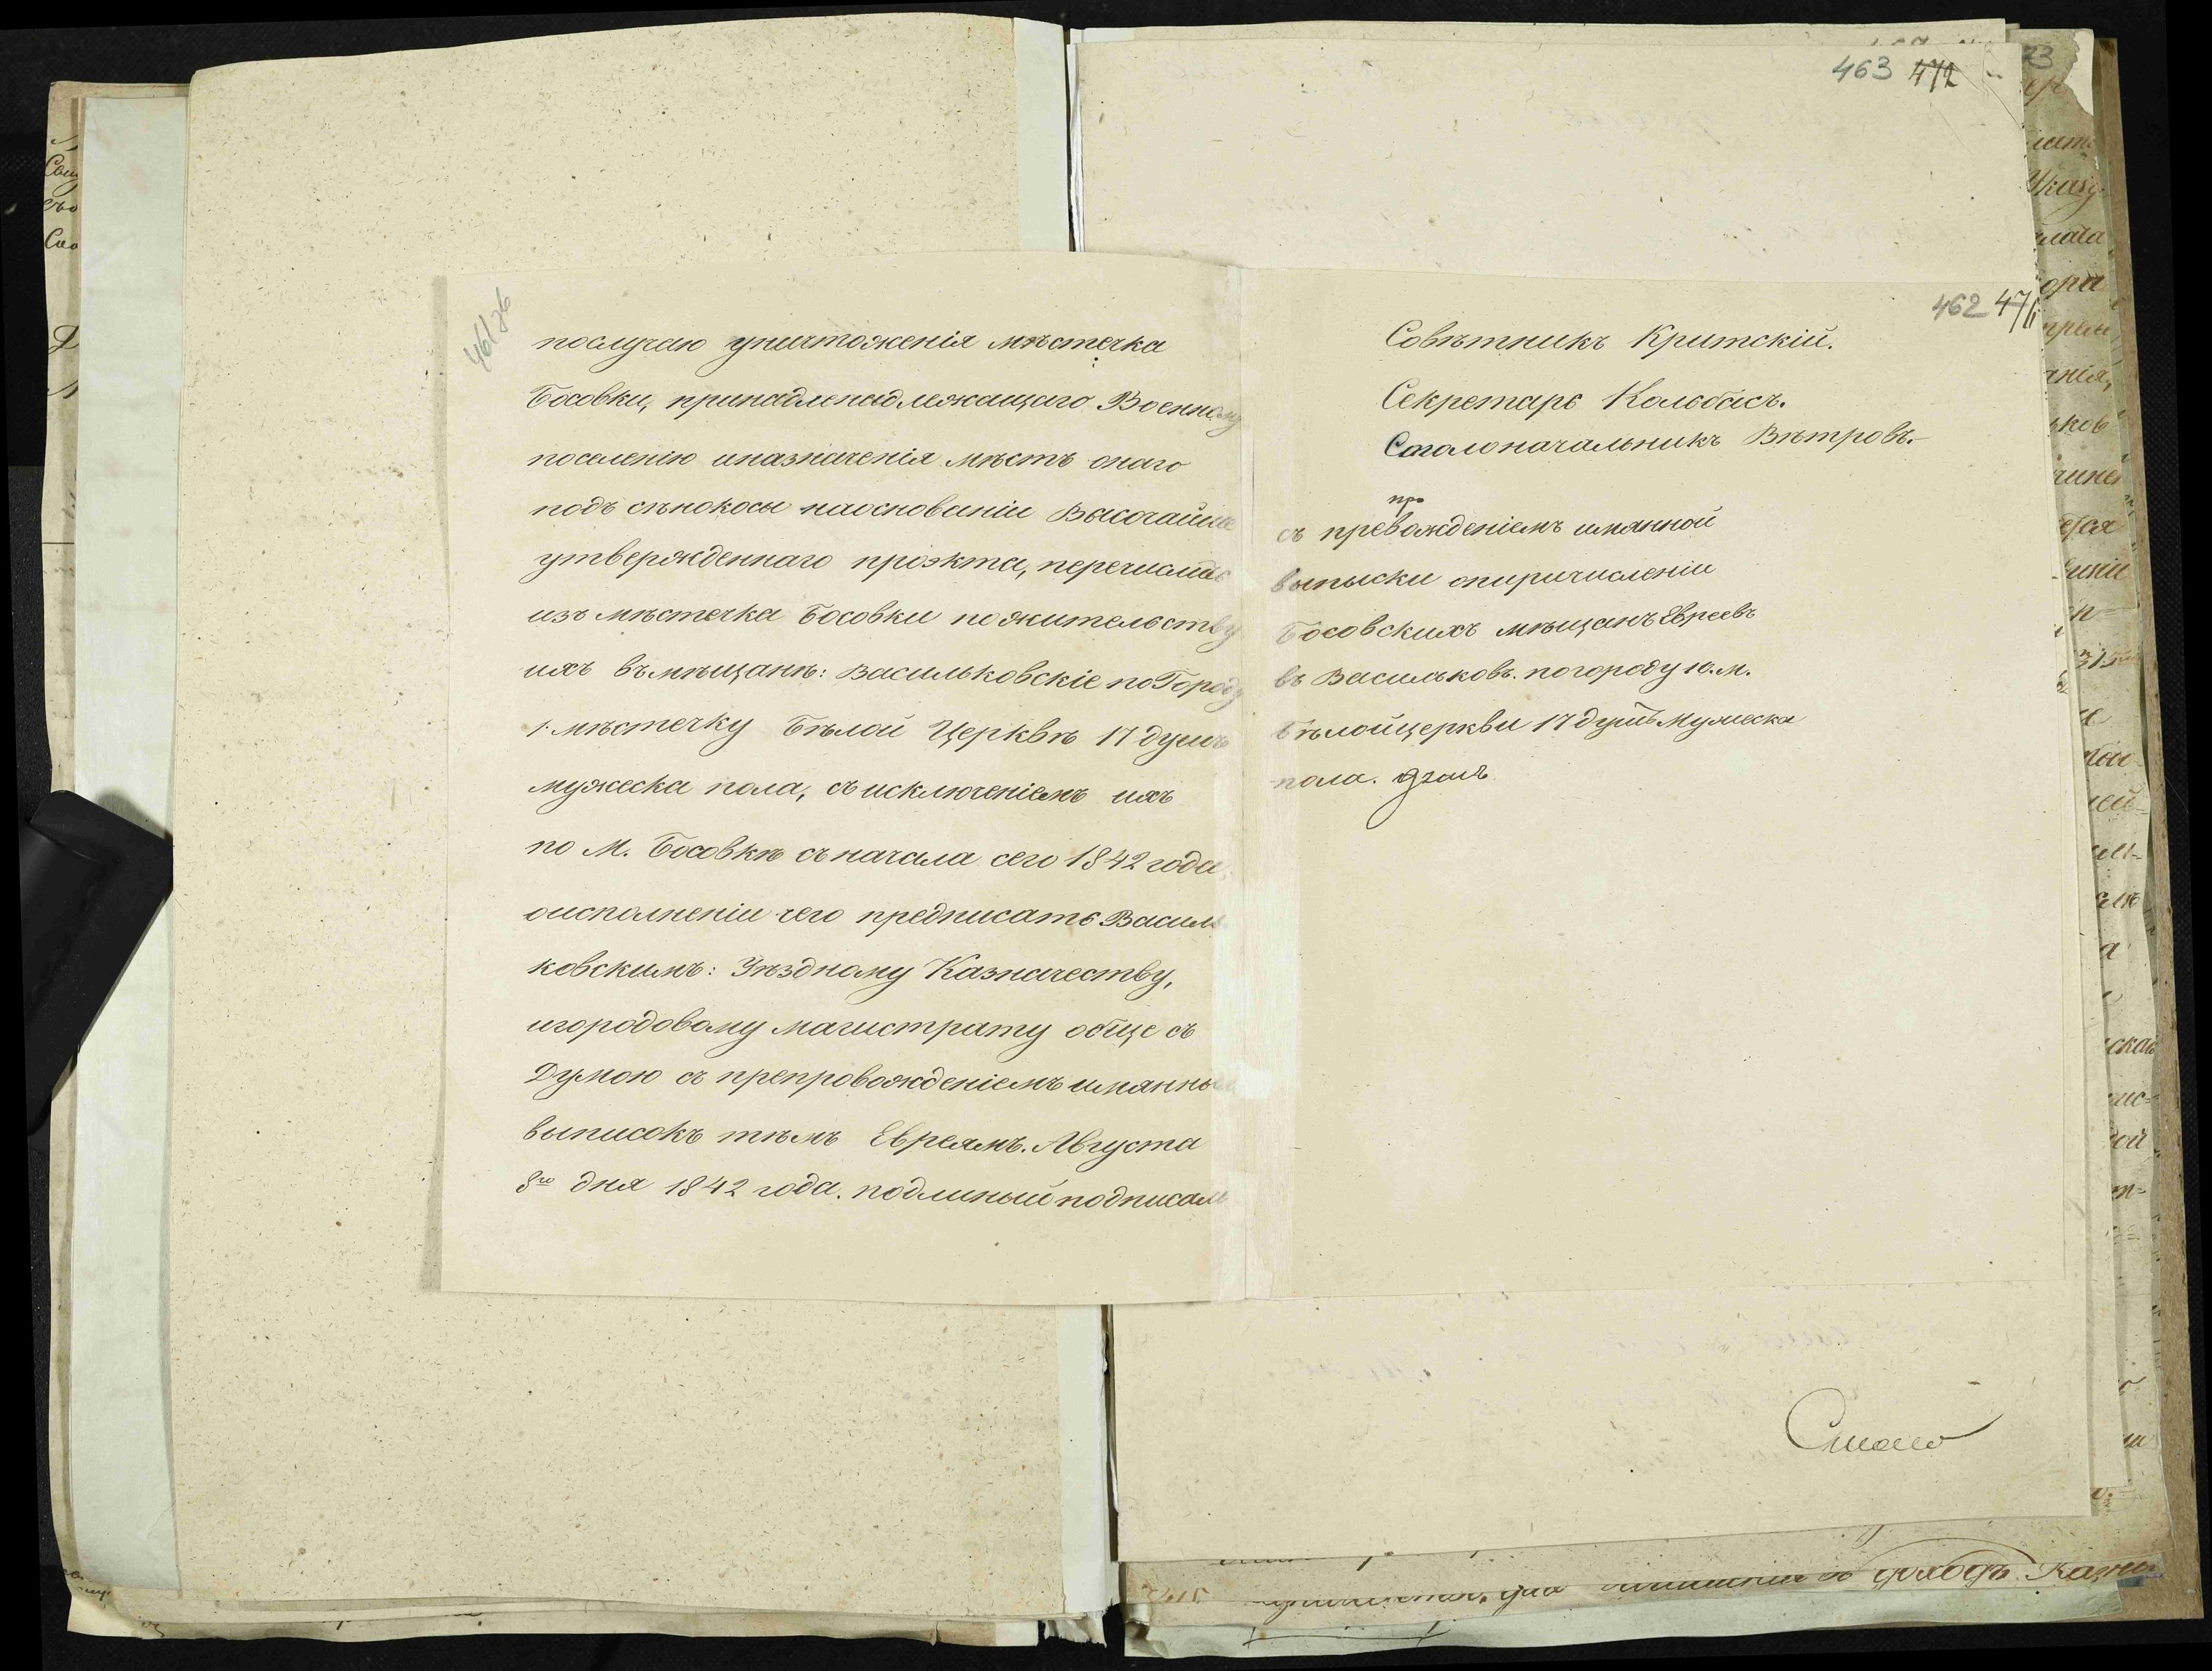 461об
послучаю уничтоженія мѣстечка
Босовки, принадленадлежащаго Военному
поселенію иназначенія мѣстъ онаго
подъ сѣнокосы наоснованіи Высочайше
утвержденнаго проэкта, перечислить
изъ мѣстечка Босовки пожительству
ихъ въмѣщанѣ: Васильковскіе поГороду
1. мѣстечку Бѣлой Церквѣ 17 душъ
мужеска пола, съисключеніемъ ихъ
по М. Босовкѣ съначала сего 1842 года
оисполненіи чего предписать Василь
ковскимъ: Уѣздному Казначеству,
игородовому магистрату обще съ
Думою съ препровожденіемъ имянныхъ
выписокъ тѣмъ Евреямъ. Августа
8го дня 1842 года. подлиный подписали
463 472
462 471
Совѣтникъ Критскій.
Секретарь Кольбасъ.
Столоначальникъ Вѣтровъ.
про
съ превожденіемъ имянной
выпыски опиричисленіи
Босовскихъ мѣщанъ Евреевъ
въ Васильковъ. погороду ю. м.
Бѣлойцеркви 17 душъ Мужеска
пола.
73
Указу
доходъ Казны